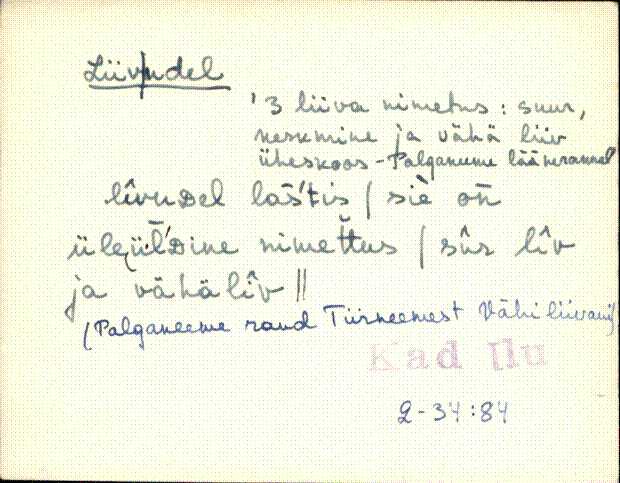 Liivudel
'3 liiva nimetus: suur,
keskmine ja vähä liiv
üheskoos - Palganeeme läänerannal'
lîvuDel lāśtis / siè oǹ
üleǖĺDine nimeťtus / sûr lîv
ja vähä lîv //
(Palganeeme rand Tiirneemest Vähi liivani)
Kad Ilu
2-34:84